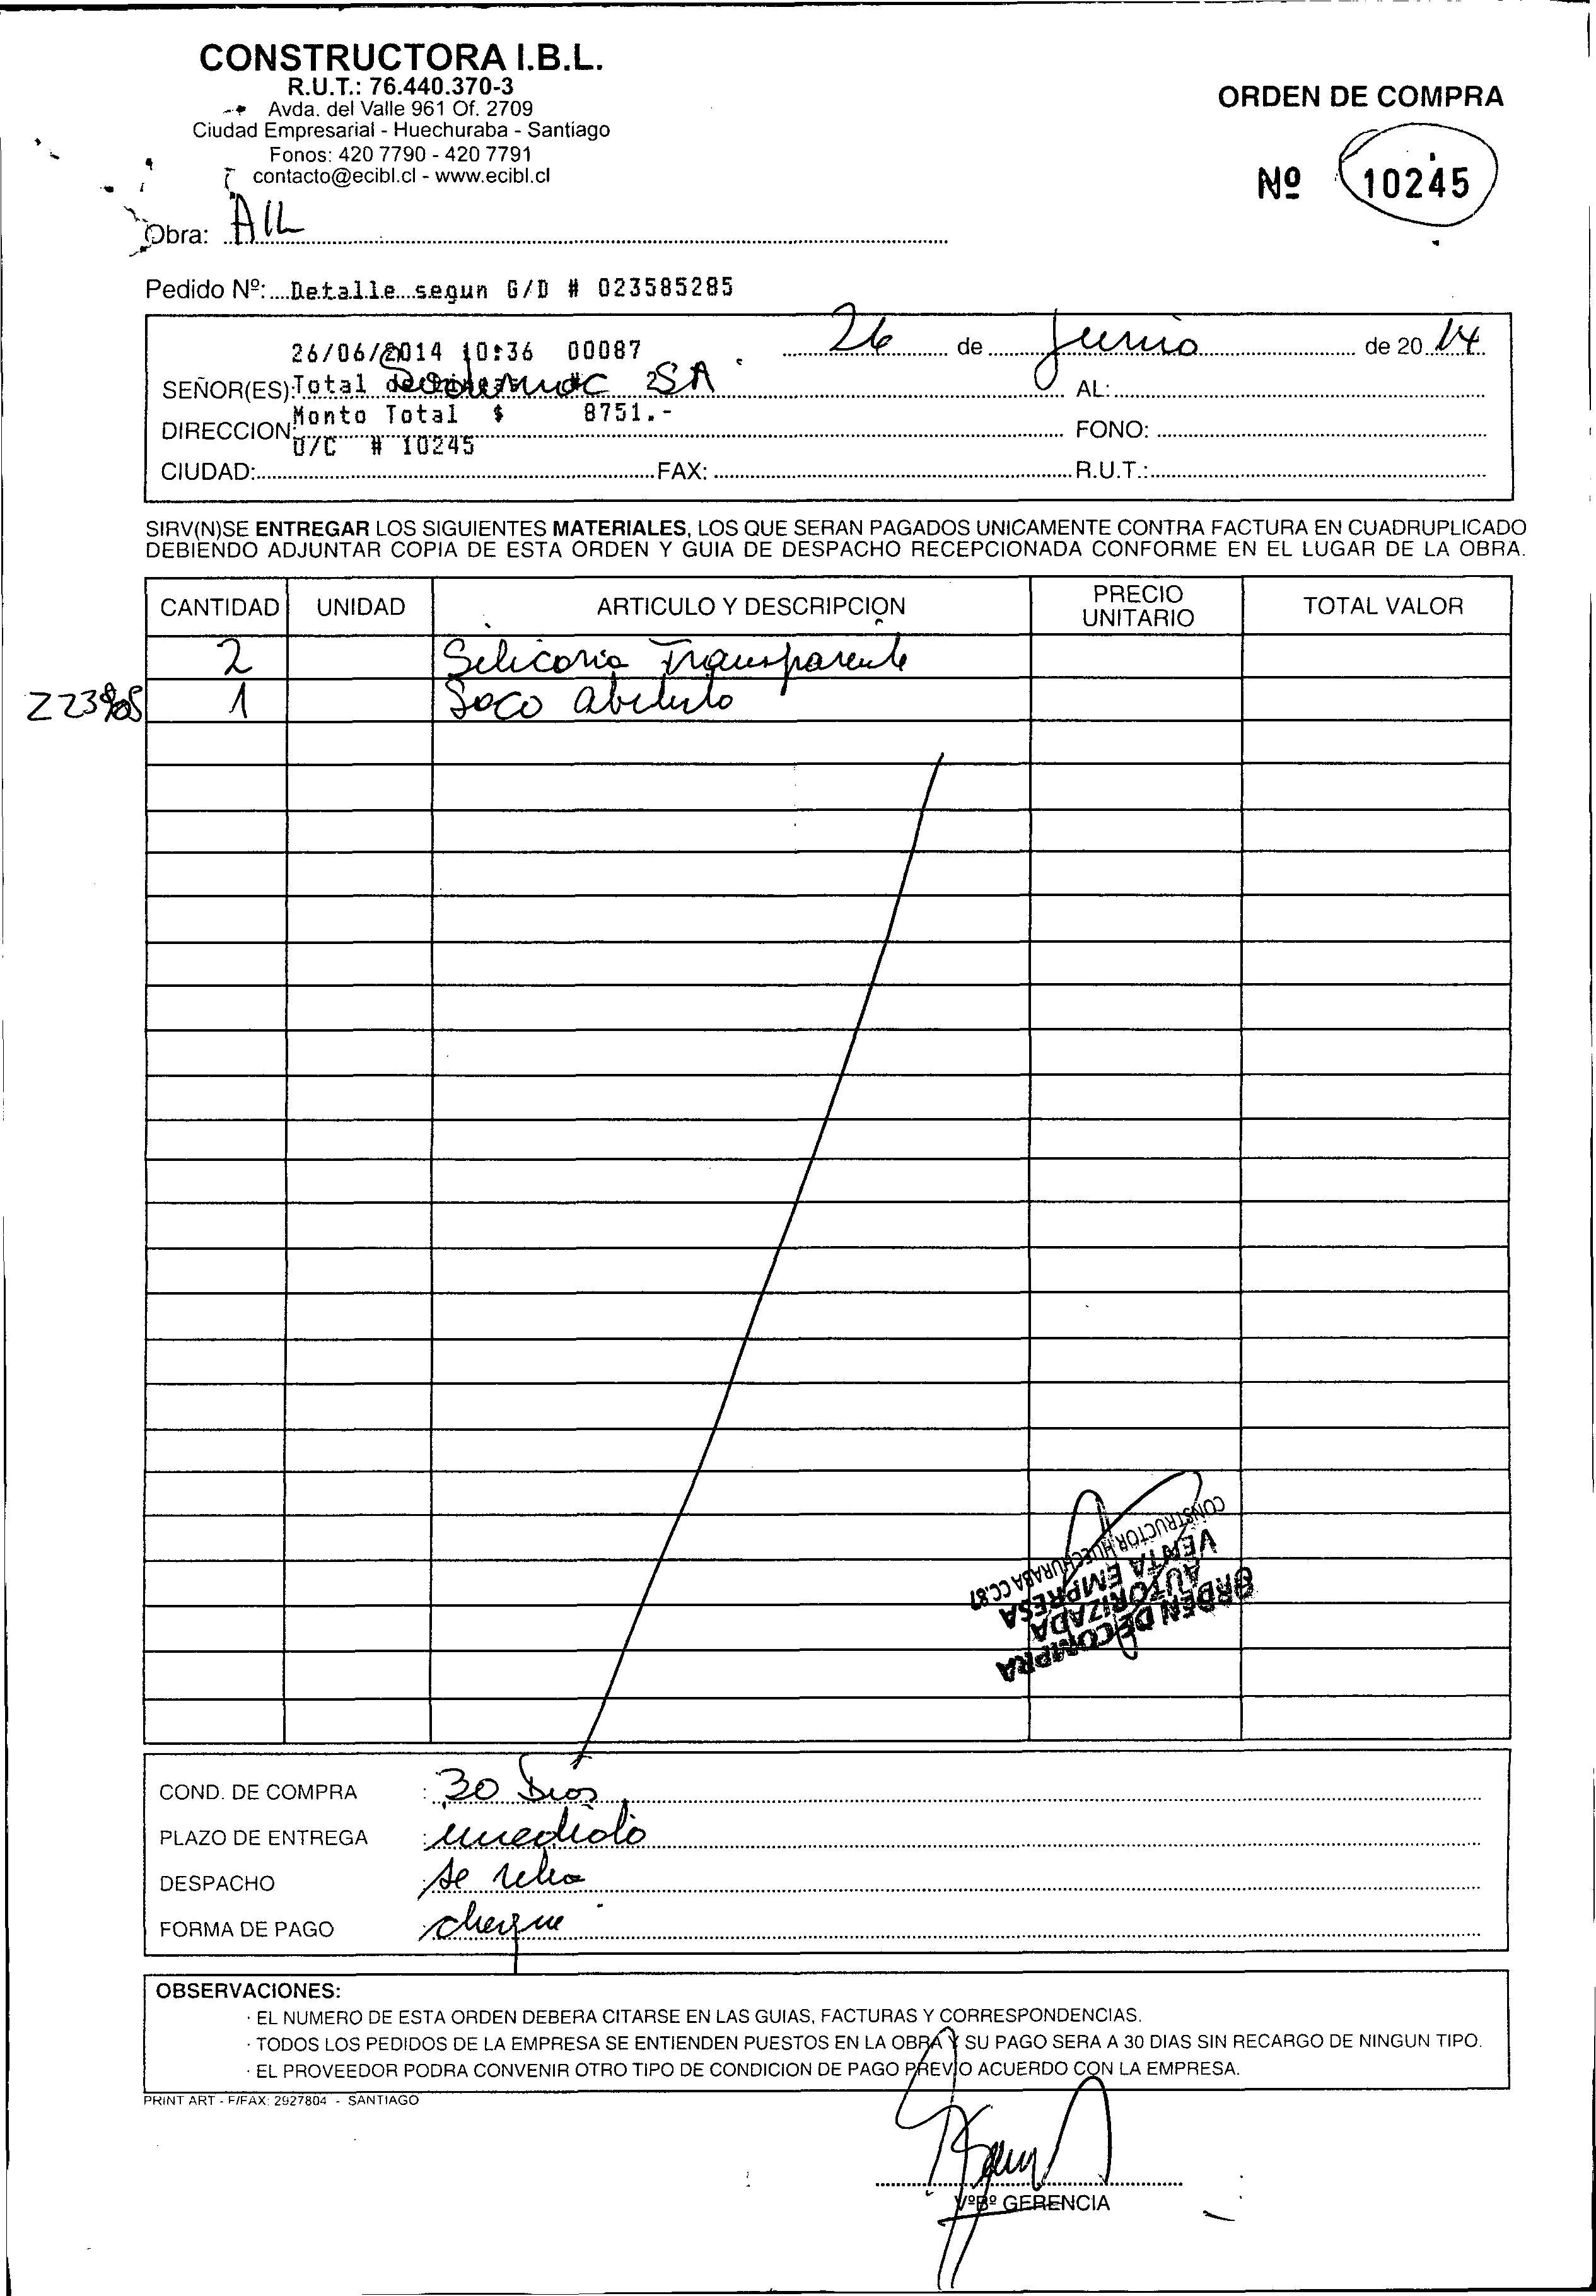 CONSTRUCTORA I.B.L.
R.U.T.: 76.440.370-3
Avda. del Valle 961 Of. 2709
Ciudad Empresarial - Huechuraba - Santiago
Fonos: 420 7790 - 420 7791
contacto@ecibl.cl - www.ecibl.cl
ORDEN DE COMPRA
Nº 10245
Obra: AIL
Pedido Nº: Detalle segun G/D # 023585285
26 de Junio de 20 14
26/06/2014 10:36 00087
SEÑOR(ES): Sodimac SA
Total de 2
AL:
Monto Total $ 8751.-
DIRECCION:
FONO:
O/C # 10245
CIUDAD: FAX: R.U.T.:
SIRV(N)SE ENTREGAR LOS SIGUIENTES MATERIALES, LOS QUE SERAN PAGADOS UNICAMENTE CONTRA FACTURA EN CUADRUPLICADO
DEBIENDO ADJUNTAR COPIA DE ESTA ORDEN Y GUIA DE DESPACHO RECEPCIONADA CONFORME EN EL LUGAR DE LA OBRA.
CANTIDAD UNIDAD ARTICULO Y DESCRIPCION PRECIO UNITARIO TOTAL VALOR
2 Silicona Transparente
1 Saco
ORDEN DE COMPRA
AUTORIZADA
VENTA EMPRESA
CONSTRUCTOR HUECHURABA CC.87
COND. DE COMPRA : 30 Dias
PLAZO DE ENTREGA : inmediato
DESPACHO : se retira
FORMA DE PAGO : cheque
OBSERVACIONES:
· EL NUMERO DE ESTA ORDEN DEBERA CITARSE EN LAS GUIAS, FACTURAS Y CORRESPONDENCIAS.
· TODOS LOS PEDIDOS DE LA EMPRESA SE ENTIENDEN PUESTOS EN LA OBRA Y SU PAGO SERA A 30 DIAS SIN RECARGO DE NINGUN TIPO.
· EL PROVEEDOR PODRA CONVENIR OTRO TIPO DE CONDICION DE PAGO PREVIO ACUERDO CON LA EMPRESA.
PRINT ART - F/FAX: 2927804 - SANTIAGO
VºBº GERENCIA